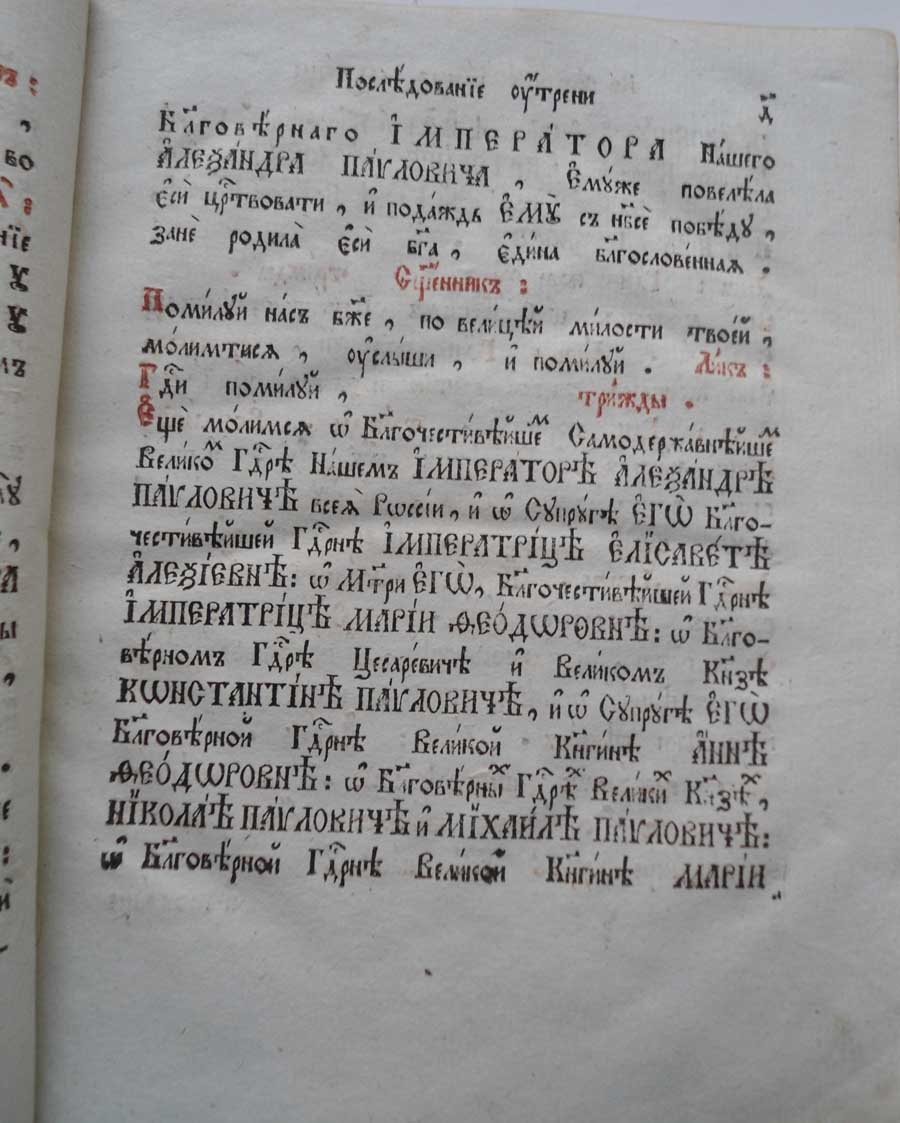 Послѣ́дованїе оу҆́трени
д҃
Бл҃говѣ́рнаго І҆МПЕРА́ТОРА На́шего
А҆ЛЕѮА́НДРА ПА́ѴЛОВИЧА, Є҆мꙋ́же повелѣ́ла
є҆сѝ црⷭ҇твовати, и҆ пода́ждь Є҆МꙊ̀ съ нб҃сѐ побѣ́дꙋ,
занѐ родила̀ є҆сѝ бг҃а, є҆ди́на бл҃гослове́нная.
Сщ҃е́нникъ:
Поми́лꙋй на́съ бж҃е, по вели́цѣй ми́лости твое́й,
мо́лимтися, оу҆слы́ши, и҆ поми́лꙋй. Ли́къ:
Гдⷭ҇и поми́лꙋй, три́жды.
Є҆щѐ мо́лимся ѡ҆ Бл҃гочести́вѣйшеⷨ Самодержа́внѣйшеⷨ
Вели́коⷨ Гдⷭ҇рѣ На́шемъ І҆МПЕРА́ТОРѢ А҆ЛЕѮА́НДРѢ
ПА́ѴЛОВИЧѢ всея̀ Рѡссі́и, и҆ ѡ҆ Сꙋпрꙋ́гѣ Є҆ГѠ̀ Бл҃го-
чести́вѣйшей Гдⷭ҇рнѣ І҆МПЕРАТРІ́ЦѢ Є҆ЛІСАВЕ́ТѢ
А҆ЛЕѮІ́ЕВНѢ: ѡ҆ Мт҃ри Є҆ГѠ̀, Бл҃гочести́вѣйшей Гдⷭ҇рнѣ
І҆МПЕРАТРІ́ЦѢ МАРІ́И ѲЕО́ДѠРОВНѢ: ѡ҆ Бл҃го-
вѣ́рномъ Гдⷭ҇рѣ Цесаре́вичѣ и҆ Вели́комъ Кн҃зѣ
КѠНСТАНТІ́НѢ ПА́ѴЛОВИЧѢ, и҆ ѡ҆ Сꙋпрꙋ́гѣ Є҆ГѠ̀
Бл҃говѣ́рной Гдⷭ҇рнѣ Вели́кой Кн҃ги́нѣ А҆́ННѢ
ѲЕО́ДѠРОВНѢ: ѡ҆ Бл҃говѣ́рныⷯ Гдⷭ҇рѣⷯ Вели́киⷯ Кн҃зѣⷯ,
НІКОЛА́Ѣ ПА́ѴЛОВИЧѢ и҆ МІХАИ́ЛѢ ПА́ѴЛОВИЧѢ:
ѡ҆ Бл҃говѣ́рной Гдⷭ҇рнѣ Вели́кой Кн҃ги́нѣ МАРІ́И